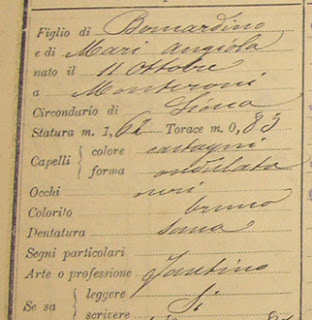 Figlio di Bernardino
e di Mari Angiola
nato il 11 Ottobre
a Monteroni
Circondario di Siena
Statura m. 1,62 Torace m. 0,83
Capelli { colore castagni
forma ondulata
Occhi neri
Colorito bruno
Dentatura sana
Segni particolari
Arte o professione
Se sa { leggere Si
scrivere